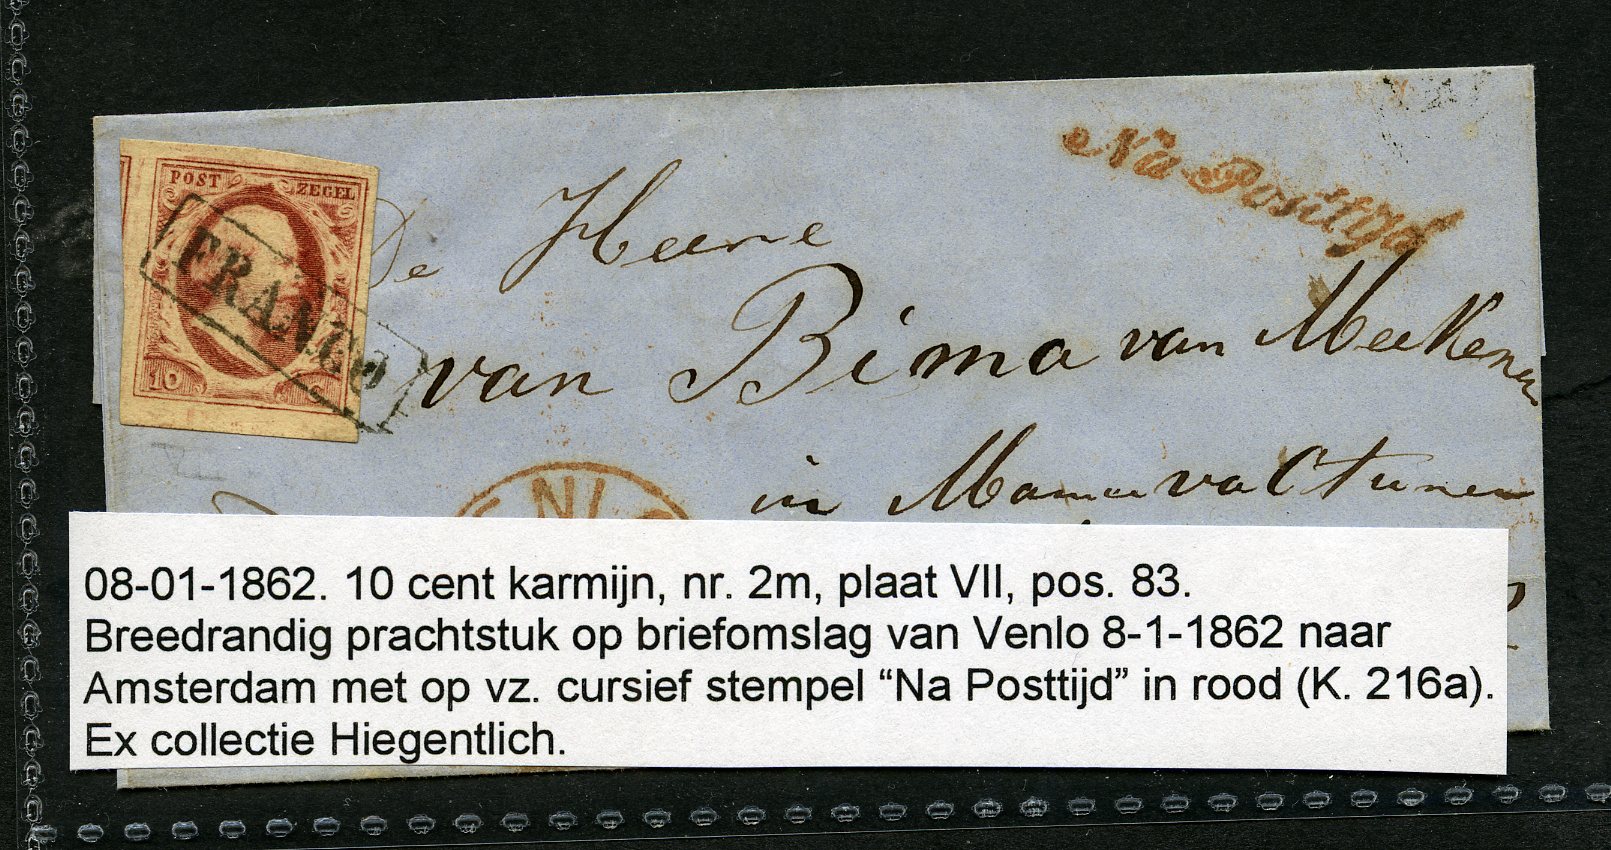 POST ZEGEL
FRANCO
10
Na Posttijd
De Heere
van Bima van
in
ENLO
08-01-1862. 10 cent karmijn, nr. 2m, plaat VII, pos. 83.
Breedrandig prachtstuk op briefomslag van Venlo 8-1-1862 naar
Amsterdam met op vz. cursief stempel “Na Posttijd” in rood (K. 216a).
Ex collectie Hiegentlich.